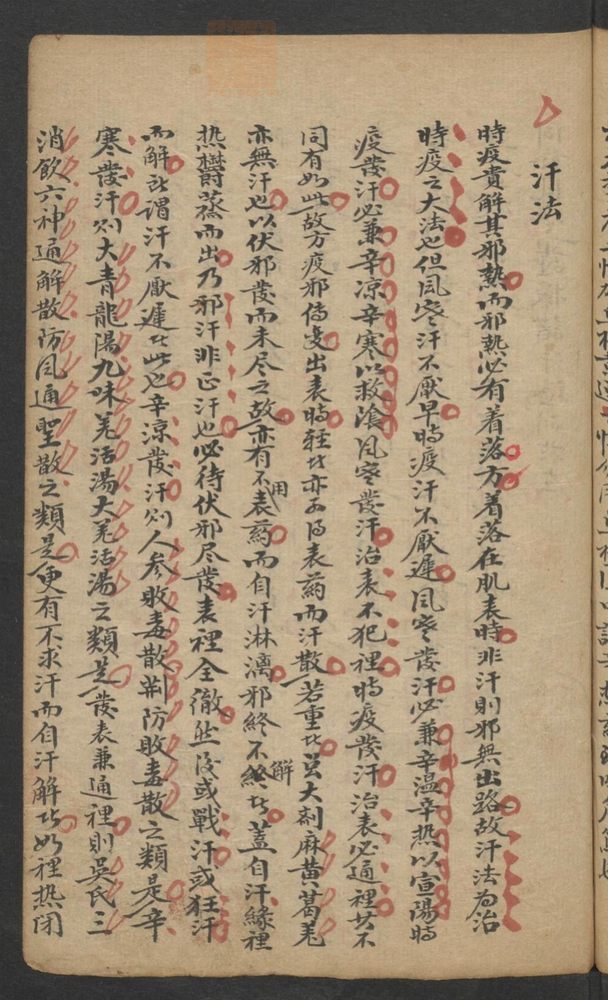 汗法
時疫貴解其邪熱而邪熱必有着落方着落在肌表時非汗則邪無出路故汗法為治
時疫之大法也但風寒汗不厭早時疫汗不厭遲風寒發汗必兼辛温辛熱以宣陽時
疫發汗必兼辛凉辛寒以救陰風寒發汗治表不犯裡時疫發汗治表必通裡其不
同有如此故方疫邪傳變出表時輕者亦可得表葯而汗散若重者雖大劑麻黄葛羌
亦無汗也以伏邪發而未尽之故亦有不用表葯而自汗淋漓邪終不解者蓋自汗緣裡
热欝蒸而出乃邪汗非正汗也必待伏邪尽發表裡全徹然後或戰汗或狂汗
而解所謂汗不厭遲者此也辛涼發汗則人参敗毒散荆防敗毒散之類是辛
寒發汗則大青龍湯九味羌活湯大羌活湯之類是發表兼通裡則吳氏三
消飲六神通解散防風通聖散之類是更有不求汗而自汗解者如裡热闭